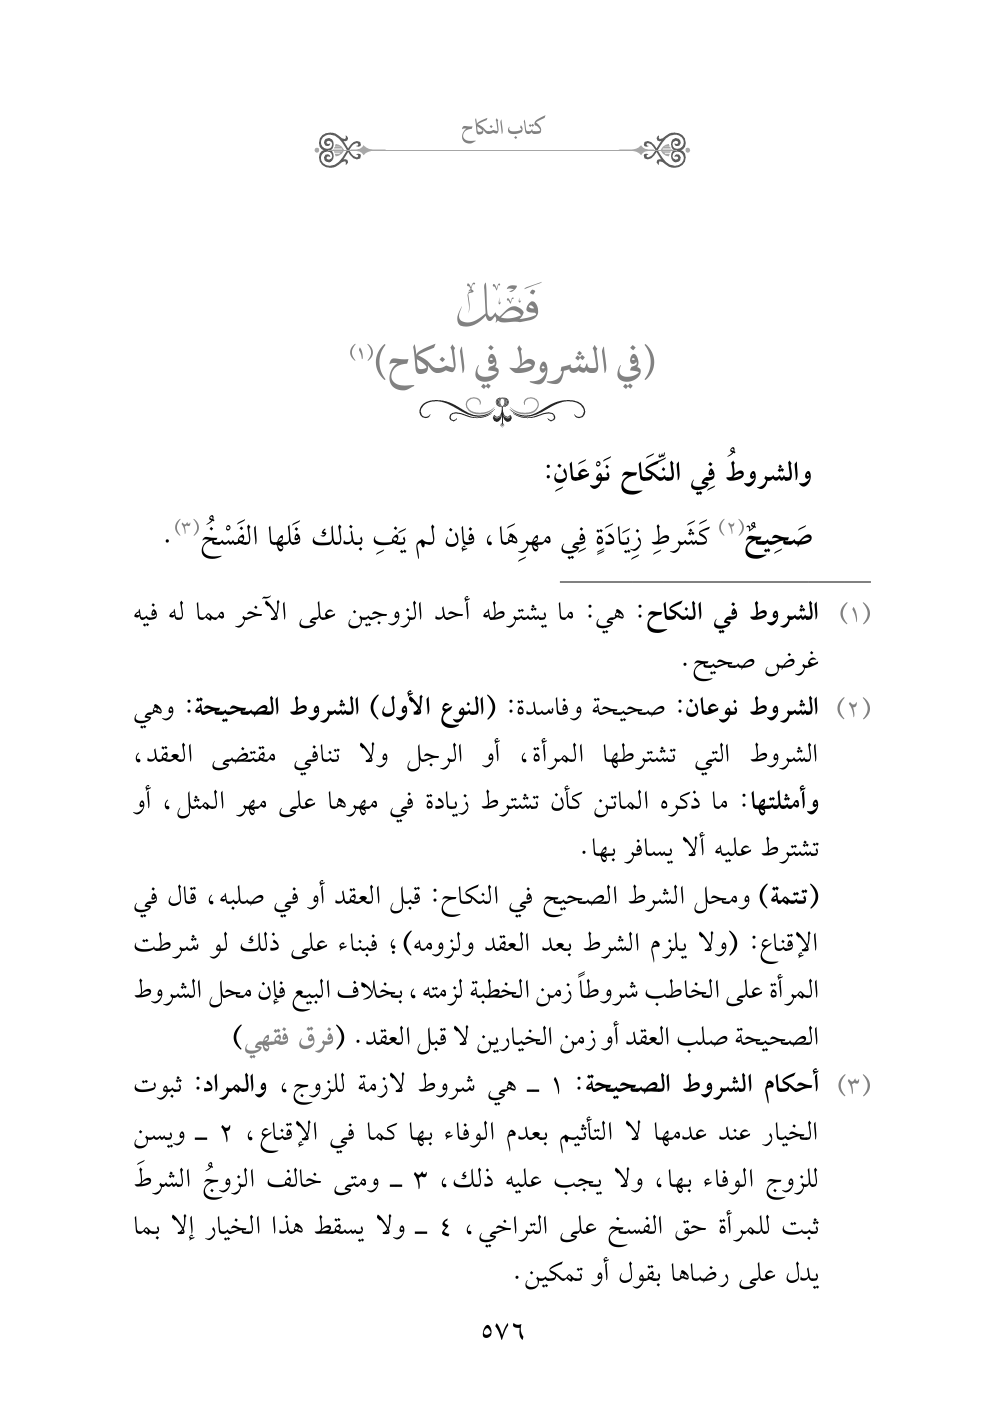 كتاب النكاح
فَصْلٌ
(في الشروط في النكاح)(١)
والشروطُ فِي النِّكَاح نَوْعَانِ:
صَحِيحٌ(٢) كَشَرطِ زِيَادَةٍ فِي مهرِهَا، فإن لم يَفِ بذلك فَلها الفَسْخُ(٣).
(١) الشروط في النكاح: هي: ما يشترطه أحد الزوجين على الآخر مما له فيه
غرض صحيح.
(٢) الشروط نوعان: صحيحة وفاسدة: (النوع الأول) الشروط الصحيحة: وهي
الشروط التي تشترطها المرأة، أو الرجل ولا تنافي مقتضى العقد،
وأمثلتها: ما ذكره الماتن كأن تشترط زيادة في مهرها على مهر المثل، أو
تشترط عليه ألا يسافر بها.
(تتمة) ومحل الشرط الصحيح في النكاح: قبل العقد أو في صلبه، قال في
الإقناع: (ولا يلزم الشرط بعد العقد ولزومه)؛ فبناء على ذلك لو شرطت
المرأة على الخاطب شروطاً زمن الخطبة لزمته، بخلاف البيع فإن محل الشروط
الصحيحة صلب العقد أو زمن الخيارين لا قبل العقد. (فرق فقهي)
(٣) أحكام الشروط الصحيحة: ١ ـ هي شروط لازمة للزوج، والمراد: ثبوت
الخيار عند عدمها لا التأثيم بعدم الوفاء بها كما في الإقناع، ٢ ـ ويسن
للزوج الوفاء بها، ولا يجب عليه ذلك، ٣ ـ ومتى خالف الزوجُ الشرطَ
ثبت للمرأة حق الفسخ على التراخي، ٤ ـ ولا يسقط هذا الخيار إلا بما
يدل على رضاها بقول أو تمكين.
٥٧٦